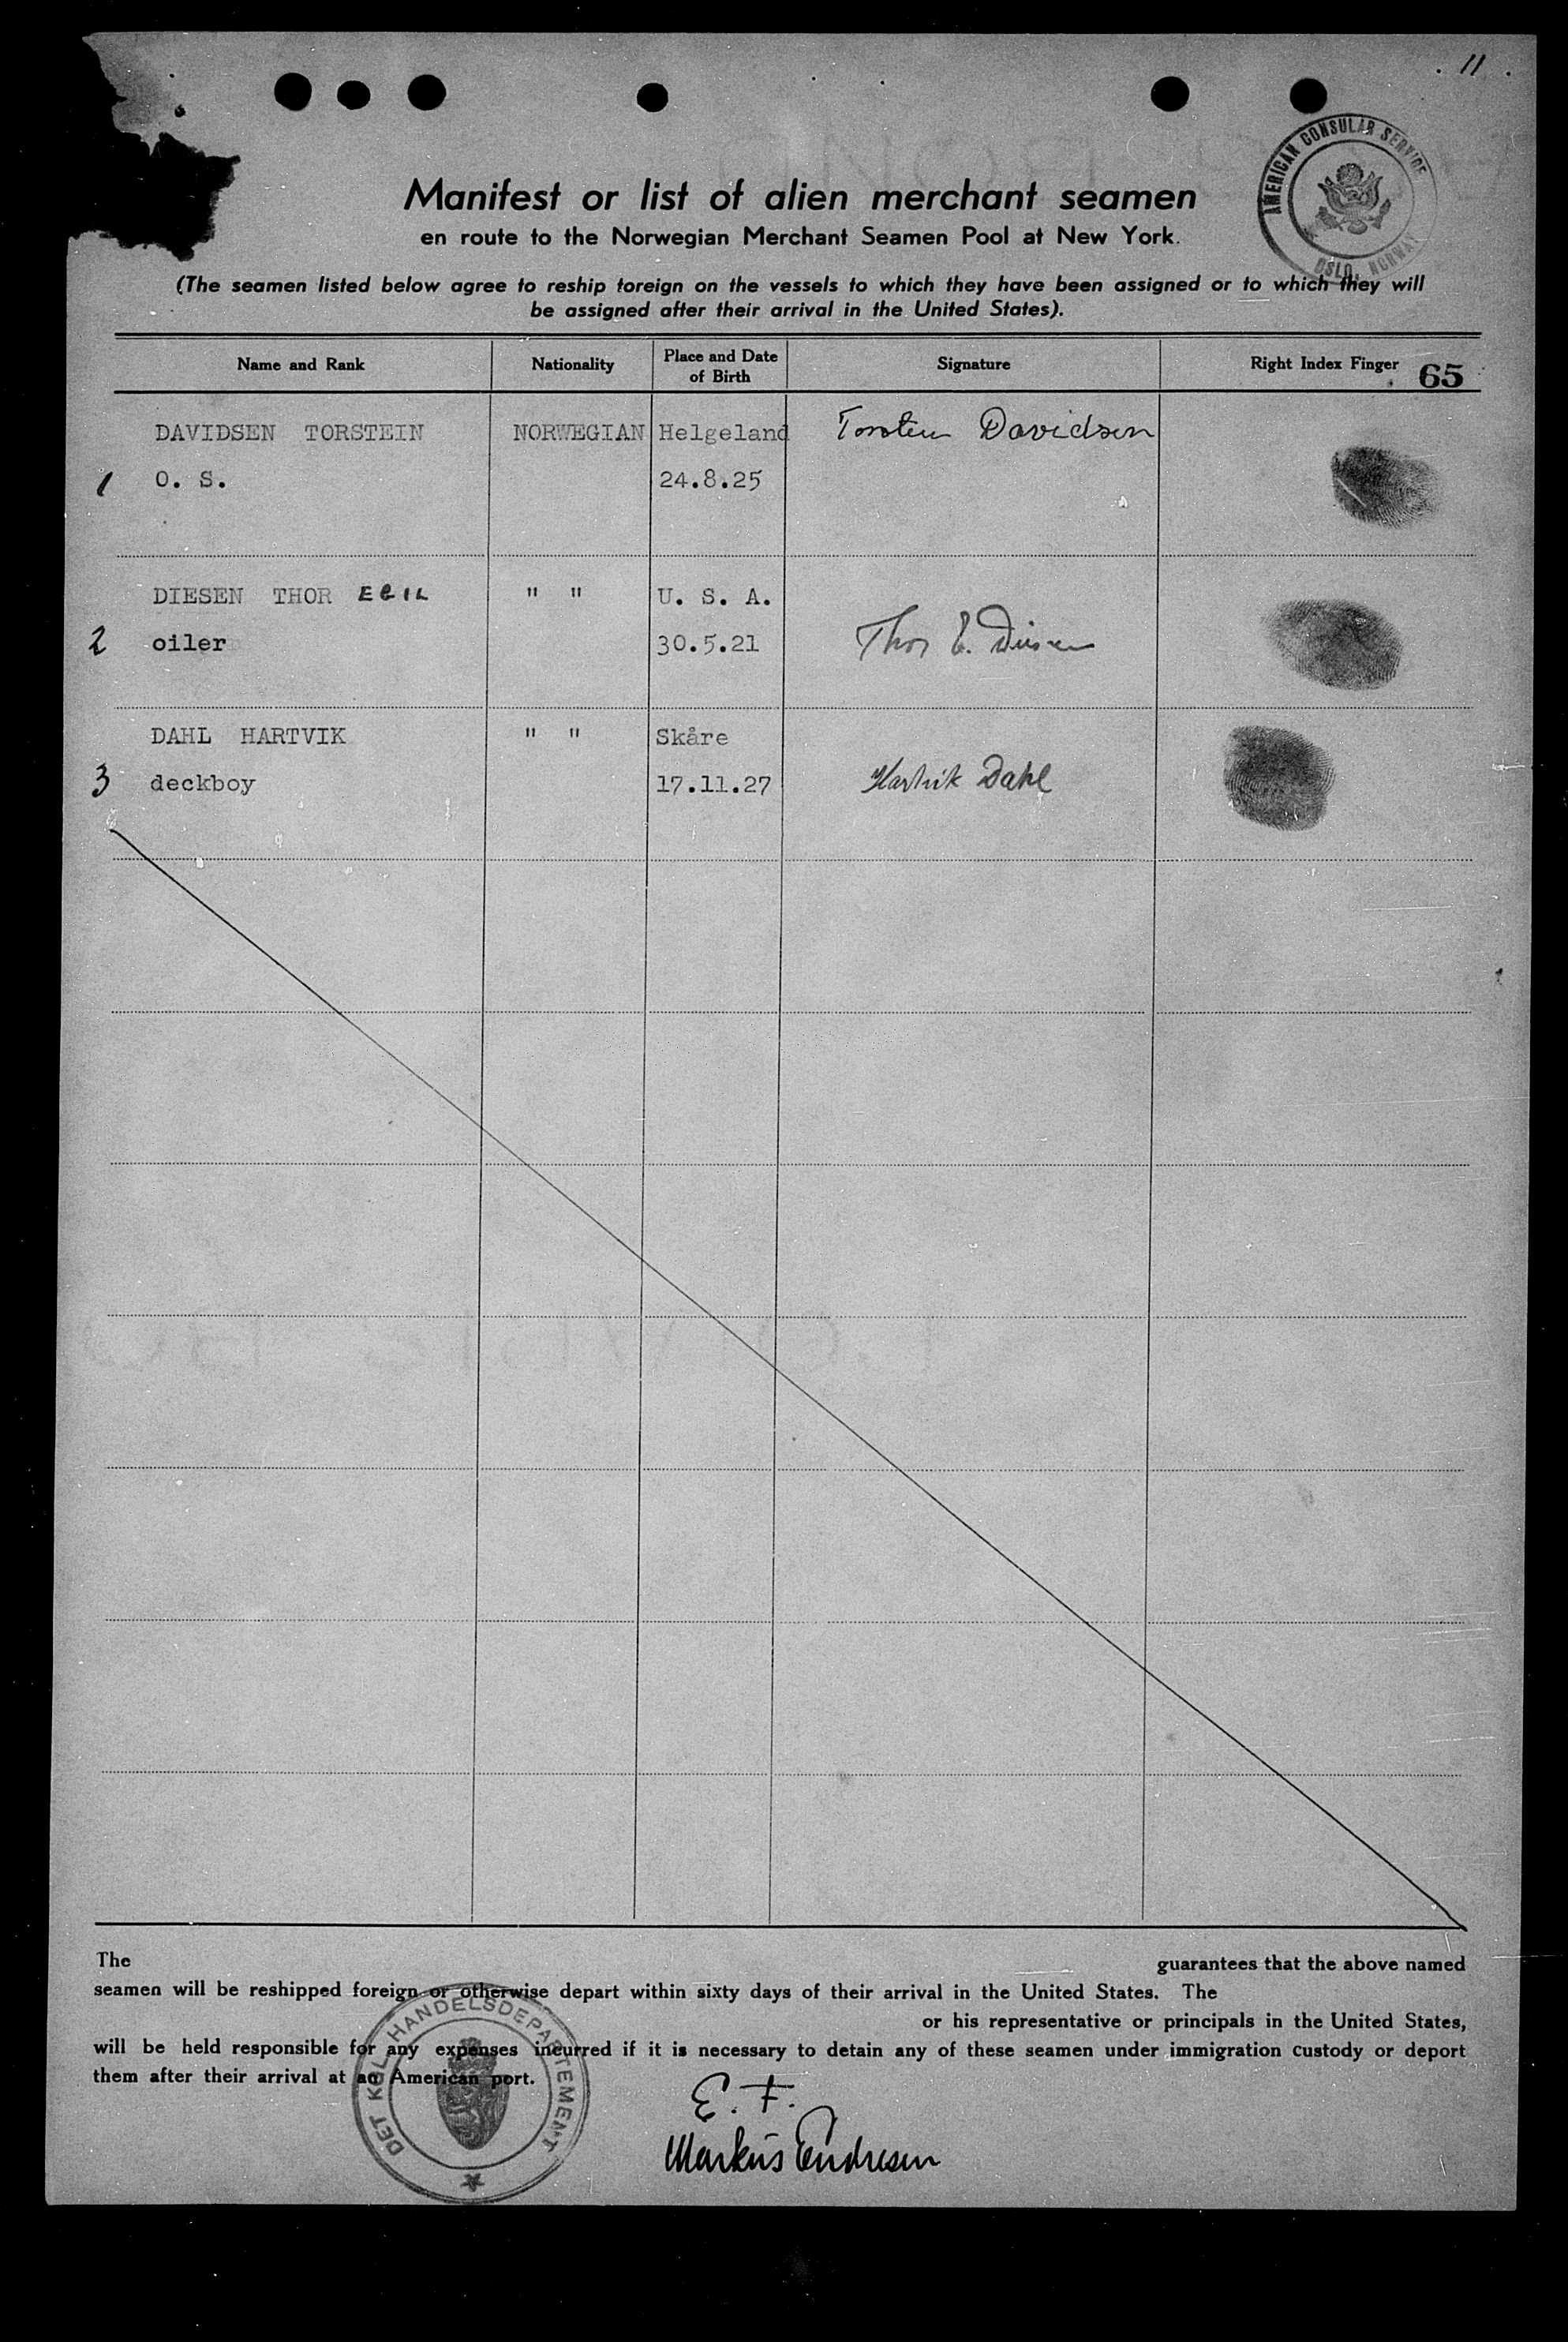 11
AMERICAN CONSULAR SERVICE
OSLO, NORWAY
Manifest or list of alien merchant seamen
en route to the Norwegian Merchant Seamen Pool at New York.
(The seamen listed below agree to reship foreign on the vessels to which they have been assigned or to which they will
be assigned after their arrival in the United States).
Name and Rank Nationality Place and Date of Birth Signature Right Index Finger 65
DAVIDSEN TORSTEIN NORWEGIAN Helgeland Torstein Davidsen
1 O. S. 24.8.25
DIESEN THOR EGIL " " U. S. A.
2 oiler 30.5.21 Thor E. Diesen
DAHL HARTVIK " " Skåre
3 deckboy 17.11.27 Hartvik Dahl
The guarantees that the above named
seamen will be reshipped foreign or otherwise depart within sixty days of their arrival in the United States. The
or his representative or principals in the United States,
will be held responsible for any expenses incurred if it is necessary to detain any of these seamen under immigration custody or deport
them after their arrival at an American port.
DET KGL. HANDELSDEPARTEMENT
E. F.
Markus Endresen